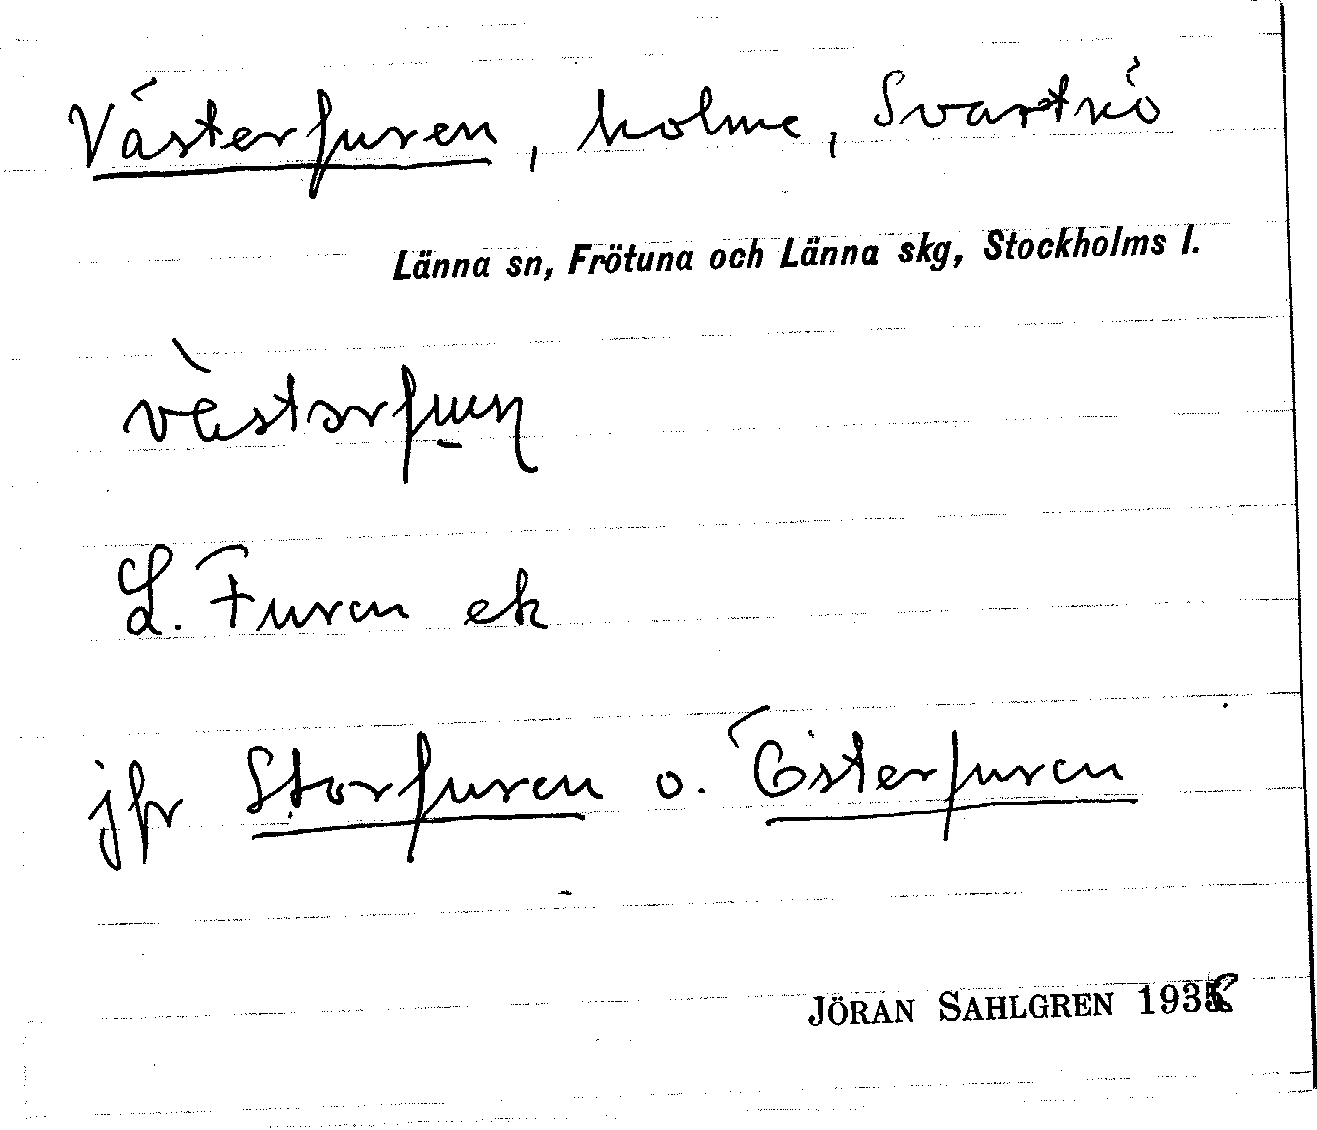 Västerfuren, holme, Svartnö
Länna sn, Frötuna och Länna skg, Stockholms l.
L. Furen ek
jfr Storfuren o. Österfuren
JÖRAN SAHLGREN 193